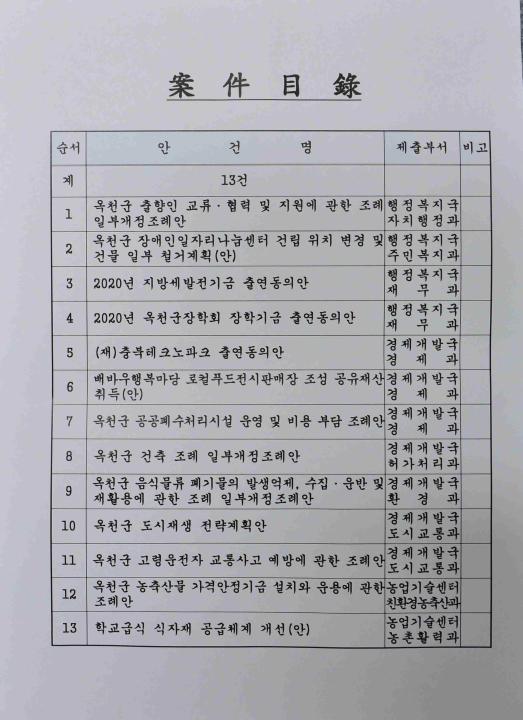 案 件 目 錄
순서 안 건 명 제출부서 비고
계 13건
1 옥천군 출향인 교류·협력 및 지원에 관한 조례 일부개정조례안 행정복지국 자치행정과
2 옥천군 장애인일자리나눔센터 건립 위치 변경 및 건물 일부 철거계획(안) 행정복지국 주민복지과
3 2020년 지방세발전기금 출연동의안 행정복지국 재무과
4 2020년 옥천군장학회 장학기금 출연동의안 행정복지국 재무과
5 (재)충북테크노파크 출연동의안 경제개발국 경제과
6 배바우행복마당 로컬푸드전시판매장 조성 공유재산 취득(안) 경제개발국 경제과
7 옥천군 공공폐수처리시설 운영 및 비용 부담 조례안 경제개발국 경제과
8 옥천군 건축 조례 일부개정조례안 경제개발국 허가처리과
9 옥천군 음식물류 폐기물의 발생억제, 수집·운반 및 재활용에 관한 조례 일부개정조례안 경제개발국 환경과
10 옥천군 도시재생 전략계획안 경제개발국 도시교통과
11 옥천군 고령운전자 교통사고 예방에 관한 조례안 경제개발국 도시교통과
12 옥천군 농축산물 가격안정기금 설치와 운용에 관한 조례안 농업기술센터 친환경농축산과
13 학교급식 식자재 공급체계 개선(안) 농업기술센터 농촌활력과